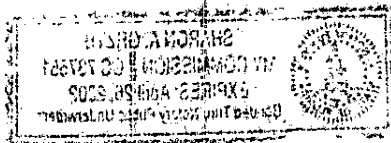 SHARON A. ORZTU
MY COMMISSION # CC 737551
EXPIRES: April 26, 2002
Bonded Thru Notary Public Underwriters